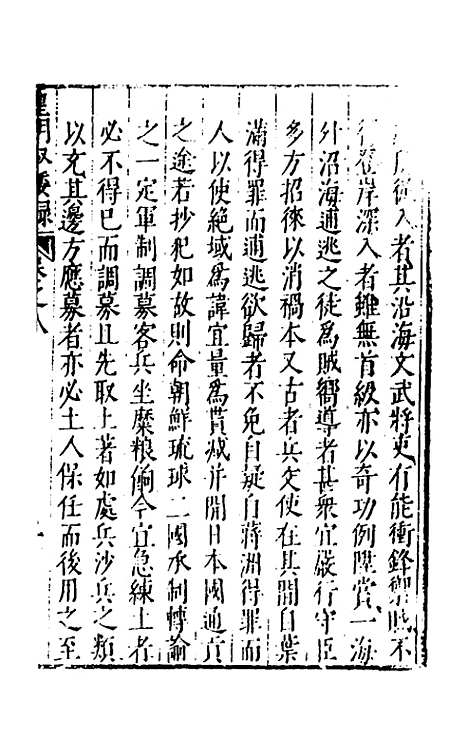 者其沿海文武將吏有能衝鋒禦賊不
登岸深入者雖無首級亦以奇功例陞賞一海
外沿海逋逃之徒為賊嚮導者甚衆宜嚴行守臣
多方招徠以消禍本又古者兵交使在其間自葉
滿得罪而逋逃欲歸者不免自疑自蔣洲得罪而
人以使絶域為諱宜量為貰减并開日本國通貢
之途若抄犯如故則命朝鮮琉球二國承制轉諭
之一定軍制調募客兵坐糜粮餉今宜急練土者
必不得已而調募且先取上著如處兵沙兵之類
以充其邊方應募者亦必土人保任而後用之至
皇明馭倭録 卷之八